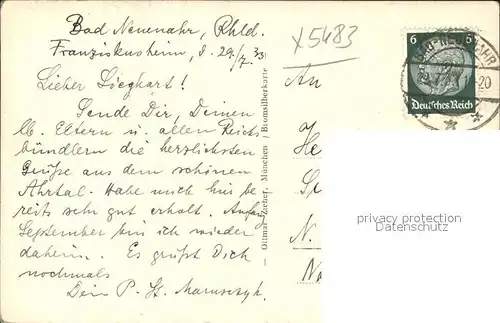 Bad Neuenahr, Rhld.
Franziskusheim, d. 29./7. 33
Lieber Sieghart!
Sende Dir, Deinen
lb. Eltern u. allen Reichs-
bündlern die herzlichsten
Grüße aus dem schönen
Ahrtal. Habe mich hier be-
reits sehr gut erholt. Anfang
September bin ich wieder
daheim. Es grüßt Dich
nochmals
Dein P. St.
x5483
An
N.
Ottmar Zieher, München / Bromsilberkarte
6 6
Deutsches Reich
-20
privacy protection
Datenschutz